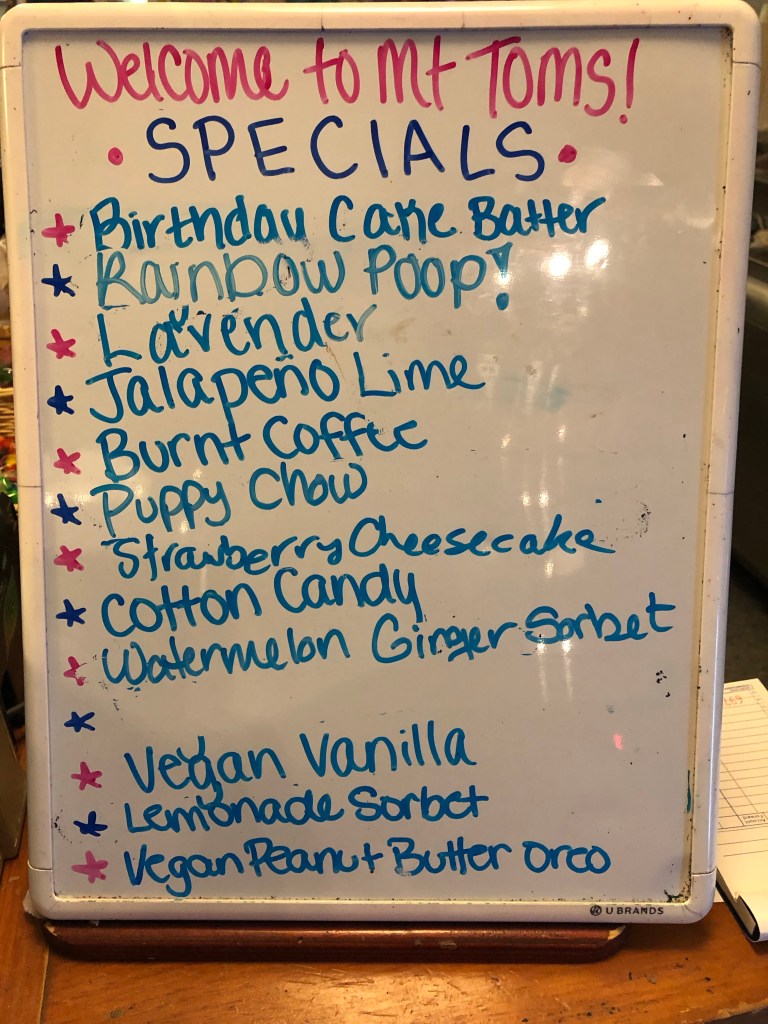 Welcome to Mt Toms!
• SPECIALS •
* Birthday Cake Batter
* Rainbow Poop!
* Lavender
* Jalapeño Lime
* Burnt Coffee
* Puppy Chow
* Strawberry Cheesecake
* Cotton Candy
* Watermelon Ginger Sorbet
*
* Vegan Vanilla
* Lemonade Sorbet
* Vegan Peanut Butter Oreo
U BRANDS